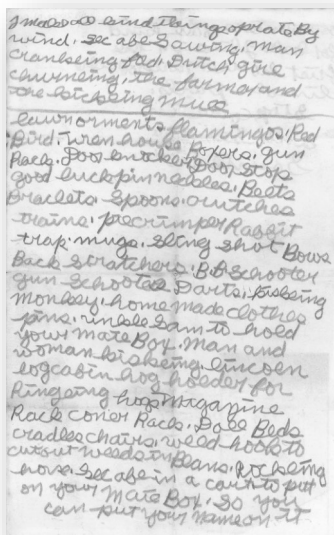 I made all kind things oprate By
wind. See abe Sawing, man
cranking ford. Dutch girl
churneing, the farmer and
the kicking mule
lawnorments flamingos. Red
Bird. wren house. Boxers. gun
Rack. Door knocker Door Stop
good luck pinnebles. Beets
Bracelets. Spoons. crutches
trains. piecrimper Rabbit
trap. mugs. sling shot Bows
Back scratchers. B.B. Schooter
gun Schooter. Darts. kissing
monkey. home made clothes
pins. unkle Sam to hold
your Mate Box. Man and
woman kissing. lincoln
logcabin hog holder for
Ringing hogs Magazine
Rack Coner Rack. Doll Beds
cradles chairs. weed hook to
cutout weeds in Beans. Rocking
horse. See abe in a cart to put
on your Mate Box. So you
can put your name on it